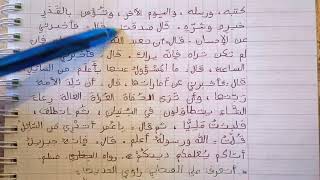 كتبه، ورسله، واليوم الآخر، وتؤمن بالقدر
خيره وشره. قال صدقت. قال فأخبرني
عن الإحسان. قال: أن تعبد الله
لم تكن تراه فإنه يراك. قال: فأخبرني
الساعة، قال: ما المسؤول عنها بأعلم من السائل
قال: فأخبرني عن أماراتها، قال: أن تلد الأمة
ربتها، وأن ترى الحفاة العراة العالة رعاء
الشاء يتطاولون في البنيان، ثم انطلق،
فلبثت مليا، ثم قال: يا عمر أتدري من السائل
قلت: الله ورسوله أعلم. قال: فإنه جبريل
أتاكم يعلمكم دينكم. رواه مسلم
. أتعرف على الصحابي راوي الحديث: